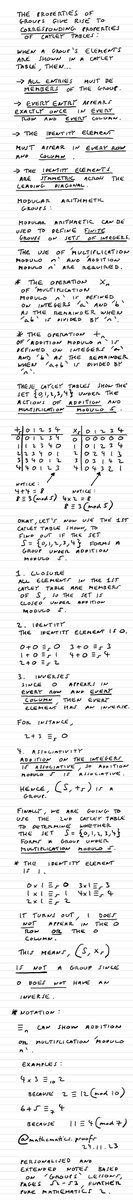 THE PROPERTIES OF
GROUPS GIVE RISE TO
CORRESPONDING PROPERTIES
OF CAYLEY TABLES.
WHEN A GROUP'S ELEMENTS
ARE SHOWN IN A CAYLEY
TABLE, THEN...
→ ALL ENTRIES MUST BE
MEMBERS OF THE GROUP.
→ EVERY ENTRY APPEARS
EXACTLY ONCE IN EVERY
ROW AND EVERY COLUMN.
→ THE IDENTITY ELEMENT
MUST APPEAR IN EVERY ROW
AND COLUMN
→ THE IDENTITY ELEMENTS
ARE SYMMETRIC ACROSS THE
LEADING DIAGONAL
MODULAR ARITHMETIC
GROUPS:
MODULAR ARITHMETIC CAN BE
USED TO DEFINE FINITE
GROUPS ON SETS OF INTEGERS.
THE USE OF 'MULTIPLICATION
MODULO n' AND 'ADDITION
MODULO n' ARE REQUIRED.
* THE OPERATION ×n
OF 'MULTIPLICATION
MODULO n' IS DEFINED
ON INTEGERS 'a' AND 'b'
AS THE REMAINDER WHEN
'ab' IS DIVIDED BY 'n'.
* THE OPERATION +n
OF 'ADDITION MODULO n' IS
DEFINED ON INTEGERS 'a'
AND 'b' AS THE REMAINDER
WHEN 'a+b' IS DIVIDED
BY 'n'.
THESE CAYLEY TABLES SHOW THE
SET {0,1,2,3,4} UNDER THE
ACTIONS OF ADDITION AND
MULTIPLICATION MODULO 5.
+5 0 1 2 3 4 ×5 0 1 2 3 4
0 0 1 2 3 4 0 0 0 0 0 0
1 1 2 3 4 0 1 0 1 2 3 4
2 2 3 4 0 1 2 0 2 4 1 3
3 3 4 0 1 2 3 0 3 1 4 2
4 4 0 1 2 3 4 0 4 3 2 1
NOTICE: NOTICE:
4+4 = 8 4×2 = 8
8≡3(mod 5) 8≡3(mod 5)
OKAY, LET'S NOW USE THE 1ST
CAYLEY TABLE SHOWN, TO
FIND OUT IF THE SET
S = {0,1,2,3,4} FORMS A
GROUP UNDER ADDITION
MODULO 5.
1. CLOSURE
ALL ELEMENTS IN THE 1ST
CAYLEY TABLE ARE MEMBERS
OF S, SO THE SET IS
CLOSED UNDER ADDITION
MODULO 5.
2. IDENTITY
THE IDENTITY ELEMENT IS 0.
0+0 ≡5 0 3+0 ≡5 3
1+0 ≡5 1 4+0 ≡5 4
2+0 ≡5 2
3. INVERSES
SINCE 0 APPEARS IN
EVERY ROW AND EVERY
COLUMN, THEN EVERY
ELEMENT HAS AN INVERSE.
FOR INSTANCE,
2+3 ≡5 0
4. ASSOCIATIVITY
ADDITION ON THE INTEGERS
IS ASSOCIATIVE, SO ADDITION
MODULO 5 IS ASSOCIATIVE.
HENCE, (S, +5) IS A
GROUP.
FINALLY, WE ARE GOING TO
USE THE 2ND CAYLEY TABLE
TO DETERMINE WHETHER
THE SET S = {0,1,2,3,4}
FORMS A GROUP UNDER
MULTIPLICATION MODULO 5.
* THE IDENTITY ELEMENT
IS 1.
0×1 ≡5 0 3×1 ≡5 3
1×1 ≡5 1 4×1 ≡5 4
2×1 ≡5 2
IT TURNS OUT, 1 DOES
NOT APPEAR IN THE 0
ROW OR THE 0
COLUMN.
THIS MEANS, (S, ×5)
IS NOT A GROUP SINCE
0 DOES NOT HAVE AN
INVERSE.
* NOTATION:
≡n CAN SHOW ADDITION
OR MULTIPLICATION 'MODULO
n'.
EXAMPLES:
4×3 ≡10 2
BECAUSE 2≡12(mod 10)
6+5 ≡7 4
BECAUSE 11≡4(mod 7)
@mathematics.proofs
29.11.23
PERSONALISED AND
EXTENDED NOTES BASED
ON 'GROUPS' LESSONS,
FURTHER
PURE MATHEMATICS 2.